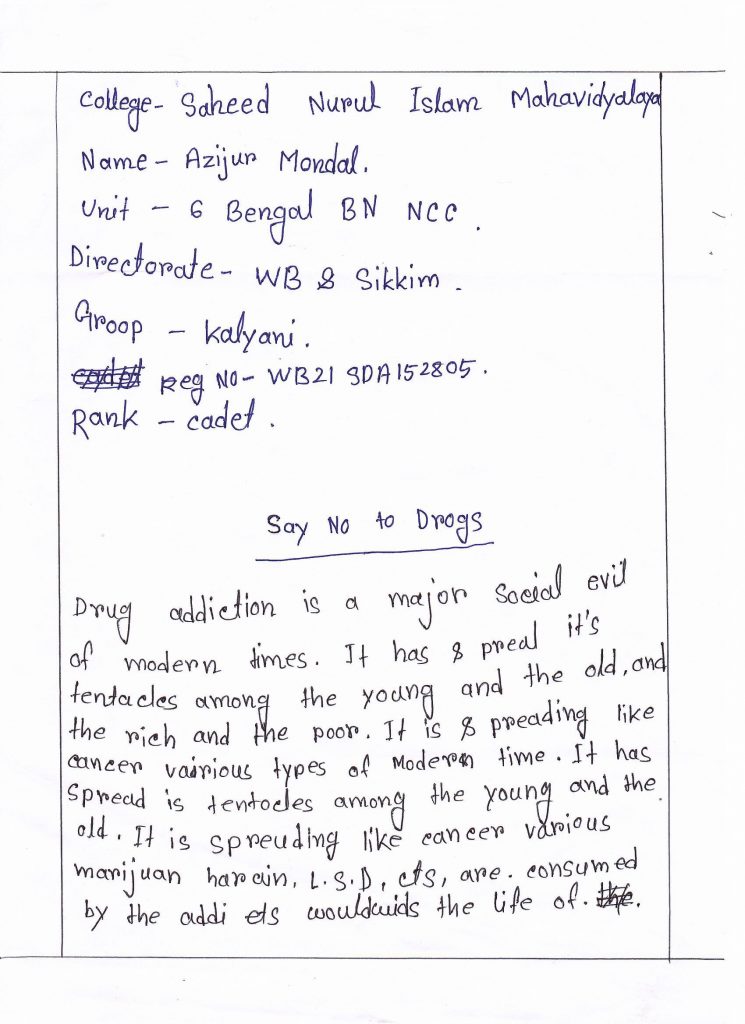 College- Saheed Nurul Islam Mahavidyalaya
Name - Azijur Mondal.
Unit - 6 Bengal BN NCC.
Directorate - WB & Sikkim.
Groop - Kalyani.
Reg No- WB21 SDA152805.
Rank - cadet.
Say No to Drogs
Drug addiction is a major social evil
of modern times. It has s preal it's
tentacles among the young and the old, and
the rich and the poor. It is s preading like
cancer vairious types of Modern time. It has
spread is tentocles among the young and the
old. It is spreuding like cancer various
marijuan haroin, L.S.D, cts, are. consumed
by the addi ets the life of.